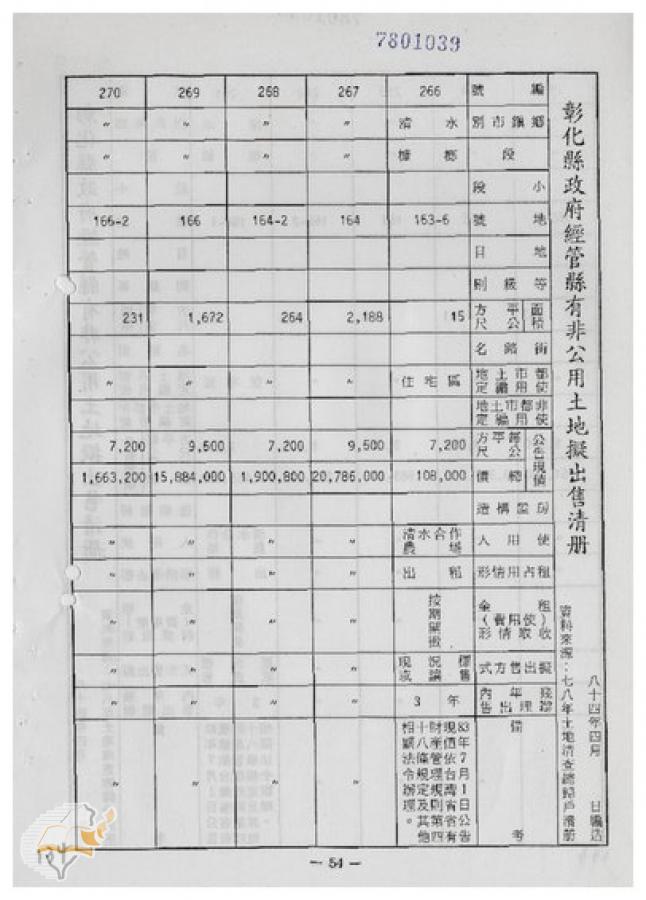 7801039
彰化縣政府經管縣有非公用土地擬出售清册
八十四年四月　日編造
資料來源：七八年土地清查總歸戶清册
編號 266 267 268 269 270
鄉鎮市別 清水 〃 〃 〃 〃
段 槺榔 〃 〃 〃 〃
小段
地號 163-6 164 164-2 166 166-2
地目
等級別
面積 平方公尺 15 2,188 264 1,672 231
街路名
都市土地使用編定 住宅區 〃 〃 〃 〃
非都市土地使用編定
公告現值 每平方公尺 7,200 9,500 7,200 9,500 7,200
總價 108,000 20,786,000 1,900,800 15,884,000 1,663,200
房屋構造
使用人 清水合作農場 〃 〃 〃 〃
租占用情形 出租 〃 〃 〃 〃
租金（使用費）收取情形 按期開徵 〃 〃 〃 〃
擬出售方式 現況標售或讓售 〃 〃 〃 〃
幾年內辦理出售 3年 〃 〃 〃 〃
備考
83年7月1日公告
現值依台灣省省有
財產管理規則第四
十八條規定及其他
相關法令辦理。
〃 〃 〃 〃
— 54 —